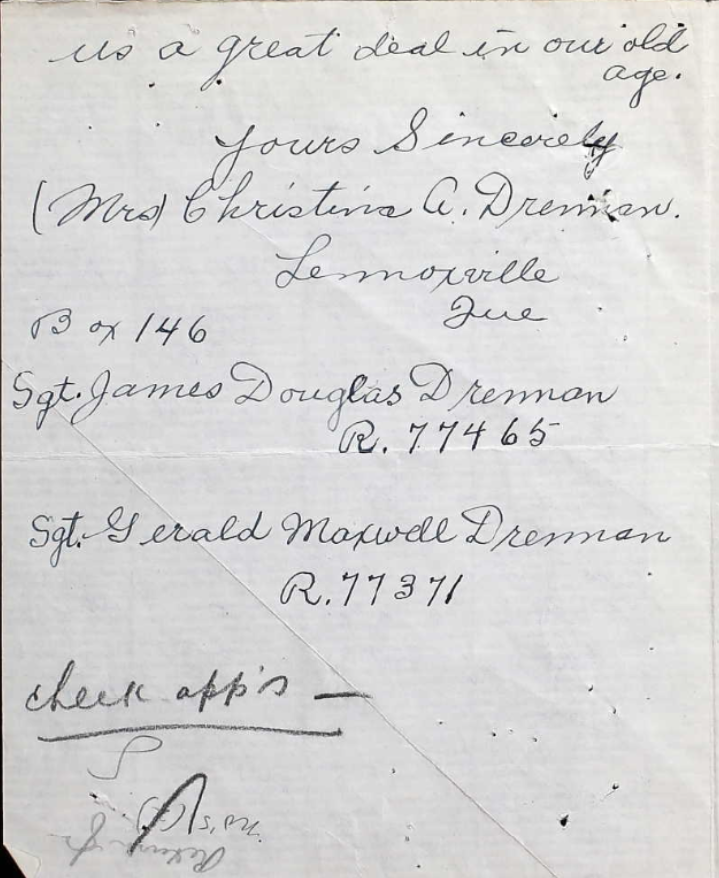 us a great deal in our old
age.
Yours Sincerely
(Mrs) Christina A. Drennan.
Lennoxville
Que
Box 146
Sgt. James Douglas Drennan
R. 77465
Sgt. Gerald Maxwell Drennan
R. 77371
check app's —